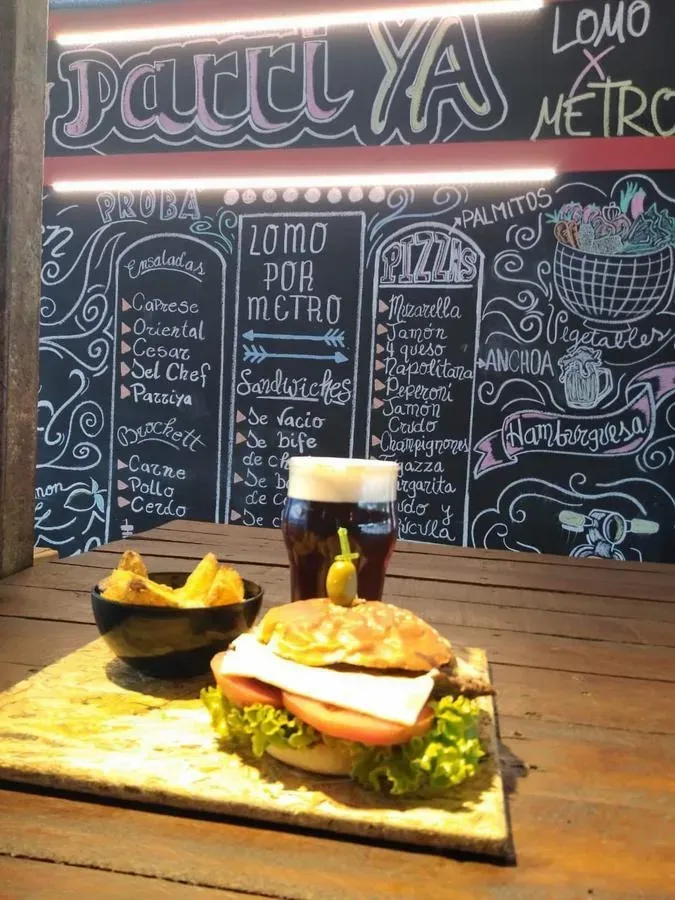 parriYA
LOMO
X
METRO
PROBA
Ensaladas
Caprese
Oriental
Cesar
Del Chef
Parriya
Brochett
Carne
Pollo
Cerdo
LOMO
POR
METRO
Sandwiches
De Vacio
De bife
de ch
De b
de c
De c
PIZZAs
Muzarella
Jamón
4 queso
Napolitana
Peperoni
Jamón
Crudo
Champignones
gazza
argarita
udo y
úcula
PALMITOS
ANCHOA
Vegetables
Hamburguesa